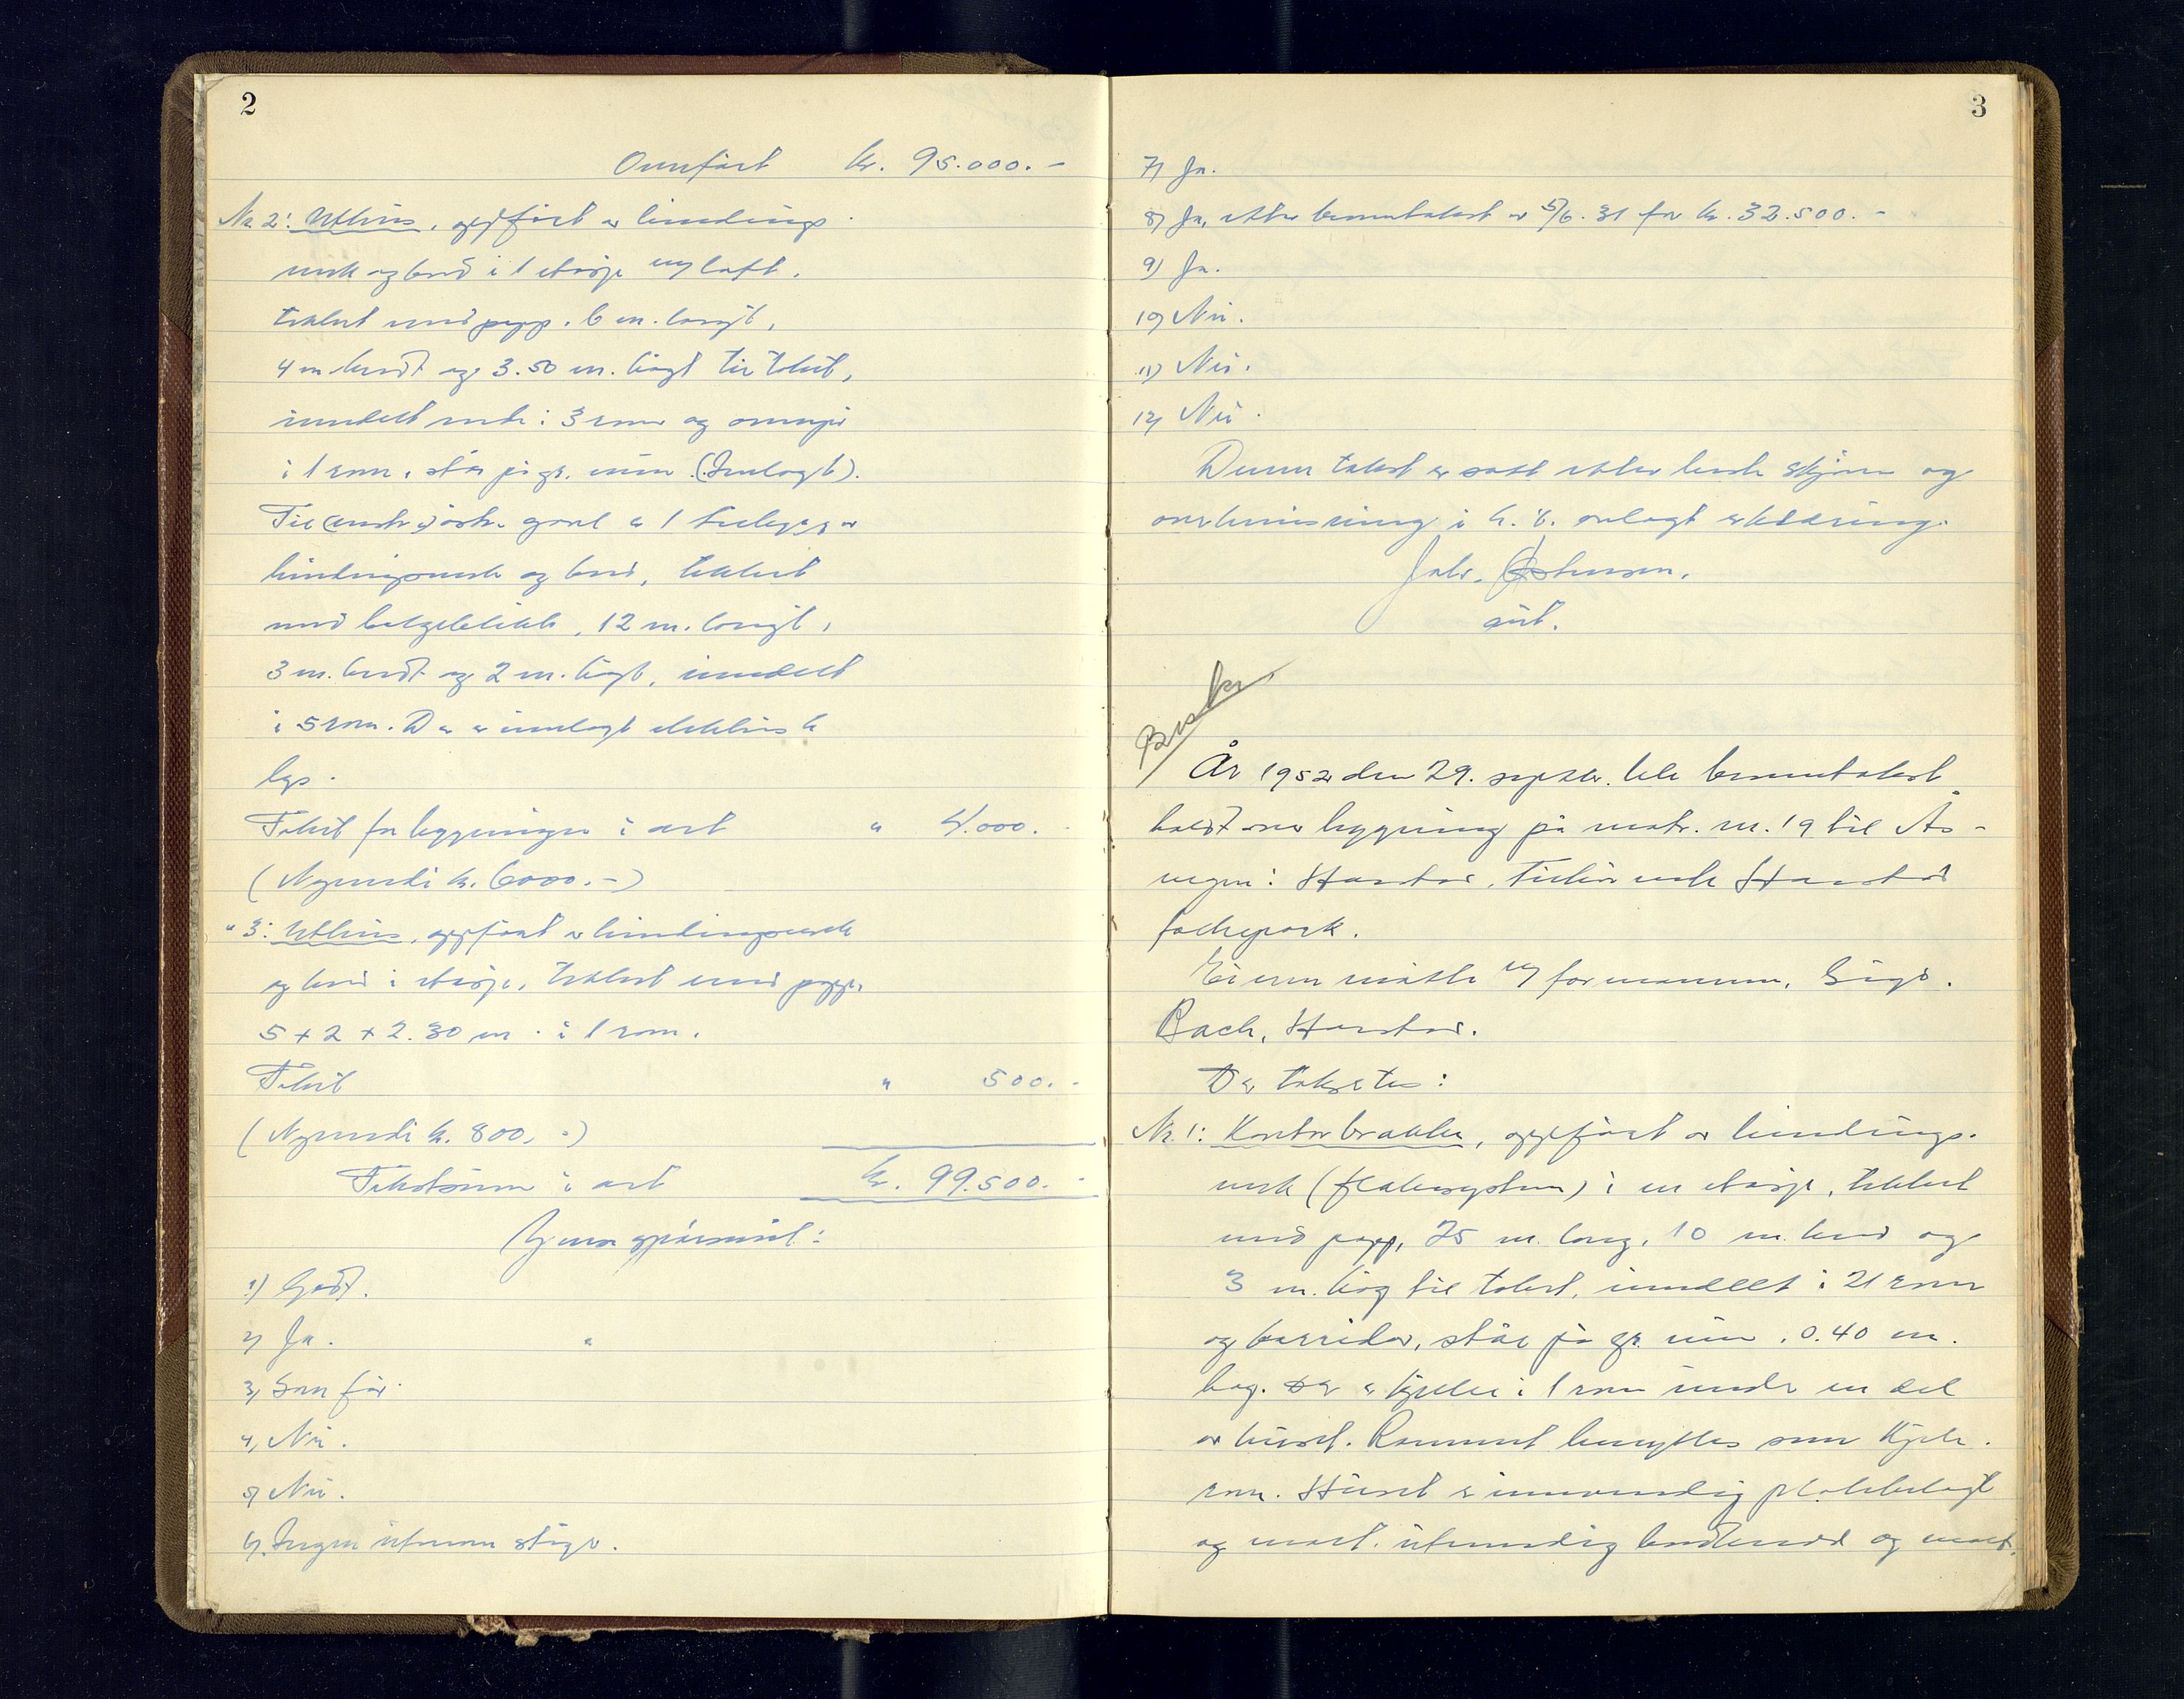 2
Overført kr. 95.000.-
Nr. 2: Uthus, oppført av bindings-
verk og bord i 1 etasje m/ loft,
tekket med papp. 6 m. langt,
4 m bredt og 3.50 m. høgt til taket,
inndelt nede i 3 rom og
i 1 rom, står på gr. mur. (Innlagt).
Til østre gavl er 1 tilbygg av
bindingsverk og bord, tekket
med bølgeblikk, 12 m. langt,
3 m. bredt og 2 m. høgt, inndelt
i 5 rom. Der er innlagt elektrisk
lys.
Takst for bygningen i alt " 4.000.-
(Nyverdi kr. 6000.-)
" 3: Uthus, oppført av bindingsverk
og bord i etasje, tekket med papp,
5 x 2 x 2.30 m. i 1 rom.
Takst " 500.-
(Nyverdi kr. 800.-)
Takstsum i alt kr. 99.500.-
spørsmål:
1) Godt.
2) Ja. "
3) Som før.
4) Nei.
5) Nei.
6) Ingen utenom stige.
3
7) Ja.
8) Ja, etter branntakst av 5/6.31 for kr. 32.500.-
9) Ja.
10) Nei.
11) Nei.
12) Nei.
Denne takst er satt etter beste skjønn og
overbevisning i h. t. avlagt erklæring.
Østensen.
År 1952 den 29. septbr. ble branntakst
holdt over bygning på matr. nr. 19 til Ås-
vegen i Harstad, tilhørende Harstad
folkepark.
Eieren møtte v/ formannen, Sigv.
Bach, Harstad.
Der takstes:
Nr. 1: Kontorbrakke, oppført av bindings-
verk (flakesystem) i en etasje, tekket
med papp, 25 m. lang, 10 m. bred og
3 m. høg til taket, inndelt i 21 rom
og korridor, står på gr. mur, 0.40 m.
høg. Der er kjeller i 1 rom under en del
av huset. Rommet benyttes som kjele-
rom. Huset er innvendig platebelagt
og malt, utvendig bordkledd og malt.